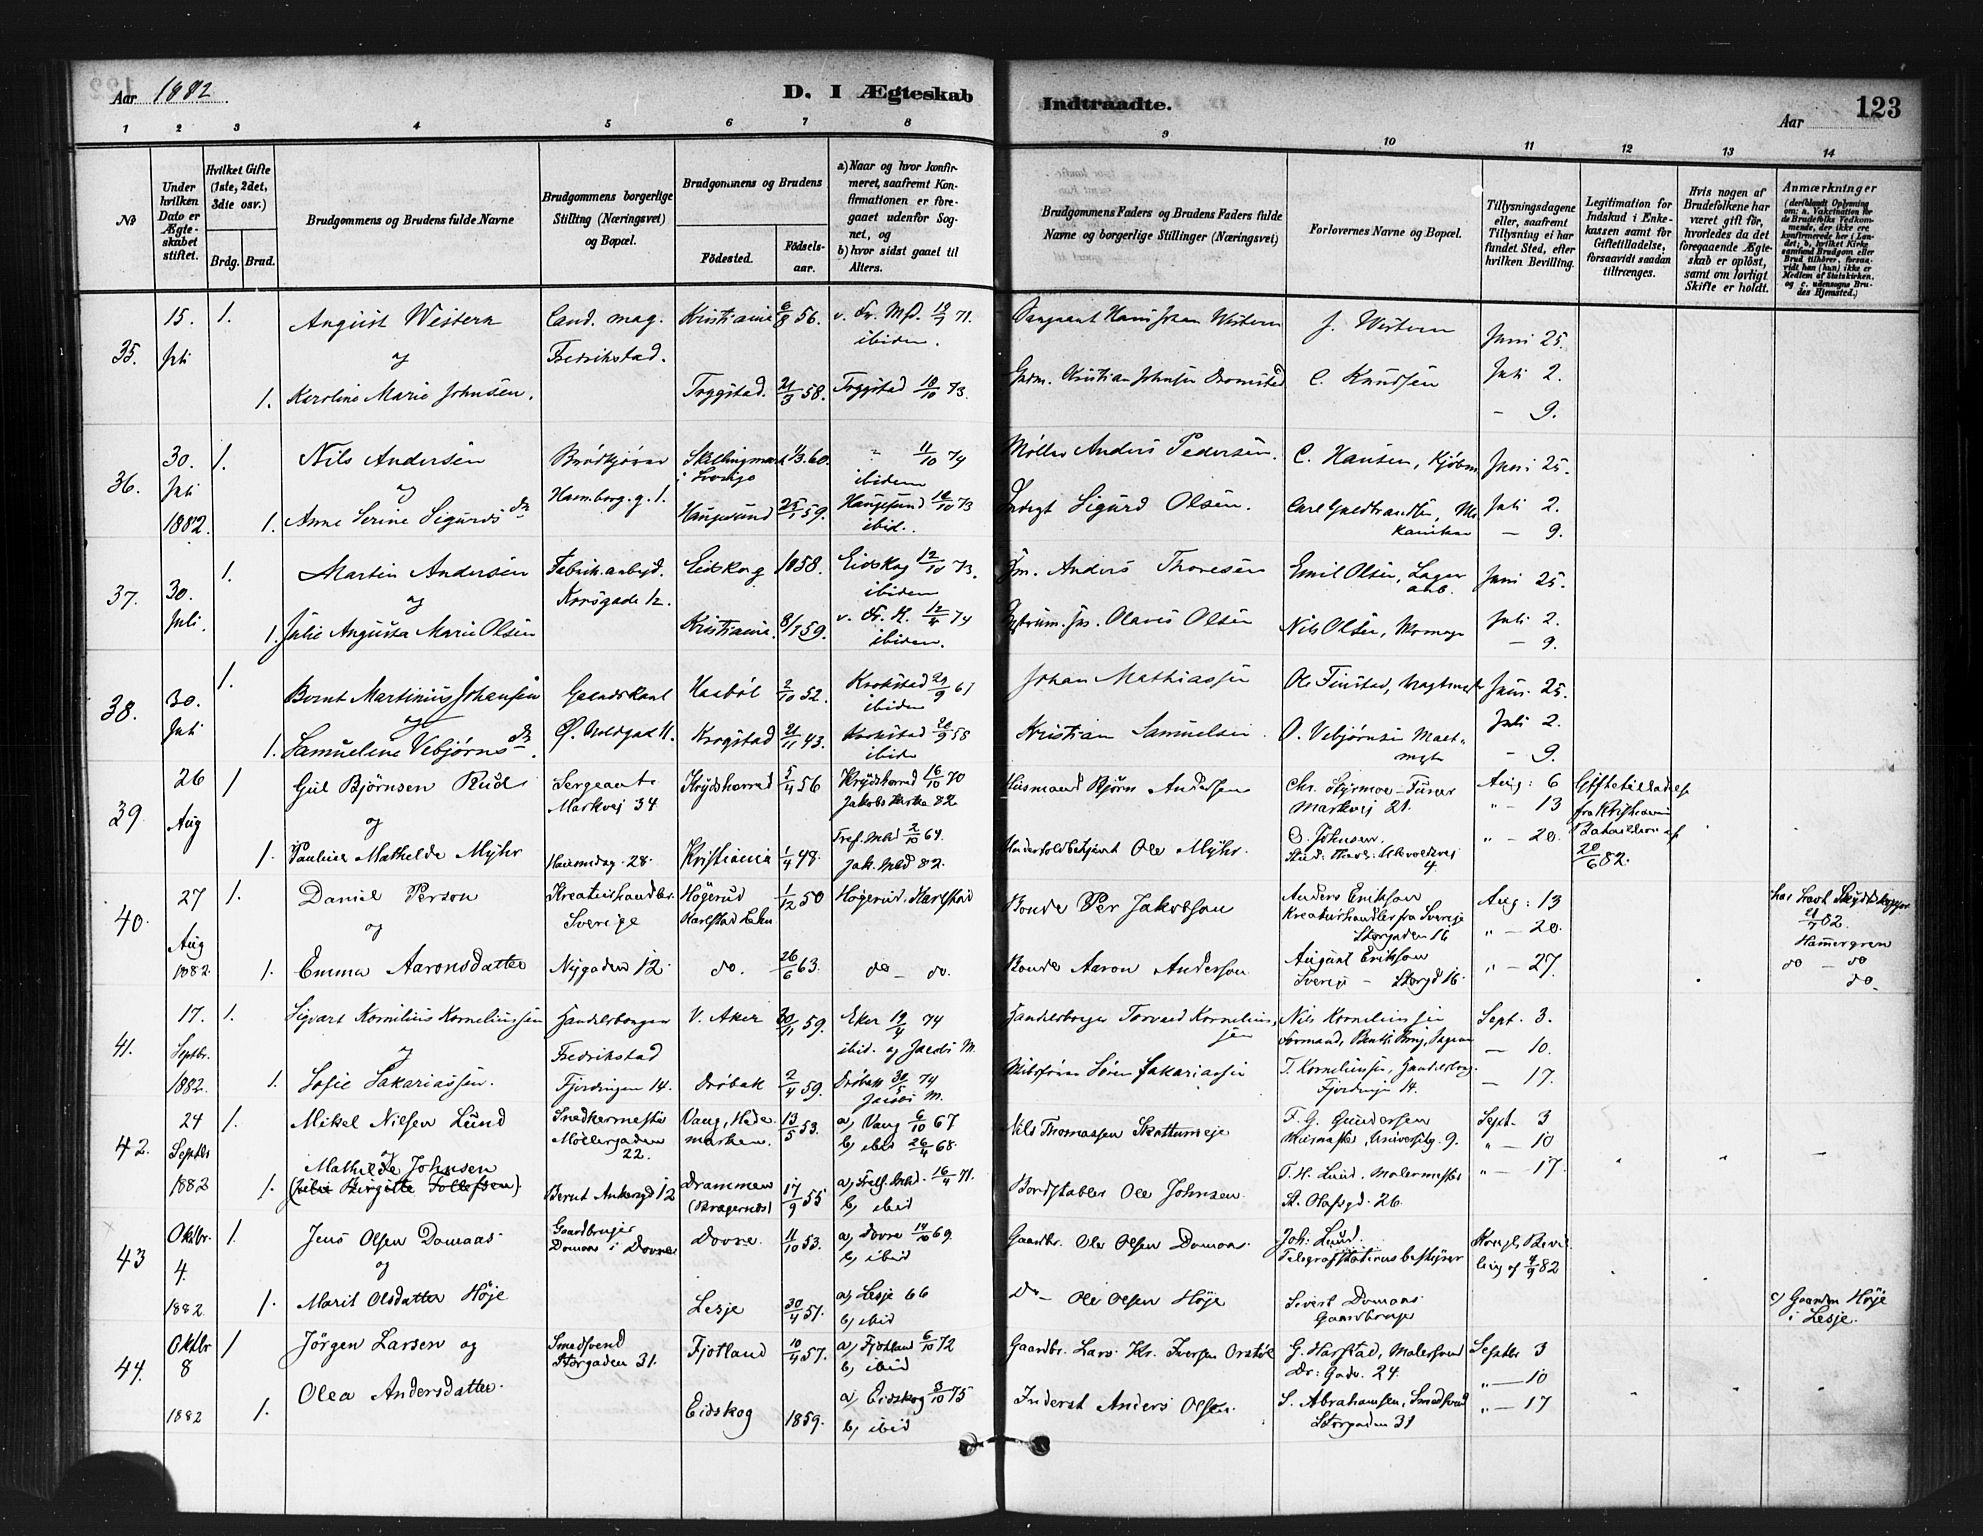 Aar 1882
D. I Ægteskab
Indtraadte.
Aar
123
1 2 3 4 5 6 7 8 9 10 11 12 13 14
No
Under hvilken Dato er Ægteskabet stiftet.
Hvilket Gifte (1ste, 2det, 3die osv.)
Brdg. Brud.
Brudgommens og Brudens fulde Navne
Brudgommens borgerlige Stilling (Næringsvei) og Bopæl.
Brudgommens og Brudens
Födested.
Födsels-aar.
a) Naar og hvor konfirmeret, saafremt Konfirmationen er foregaaet udenfor Sognet, og
b) hvor sidst gaaet til Alters.
Brudgommens Faders og Brudens Faders fulde Navne og borgerlige Stillinger (Næringsvei)
Forlovernes Navne og Bopæl.
Tillysningsdagene eller, saafremt Tillysning ei har fundet Sted, efter hvilken Bevilling.
Legitimation for Indskud i Enkekassen samt for Giftetilladelse, forsaavidt saadan tiltrænges.
Hvis nogen af Brudefolkene har været gift før, hvorledes da det foregaaende Ægteskab er opløst, samt om lovligt Skifte er holdt.
Anmærkninger
(deriblandt Oplysning om: a. Vakcination for de Brudefolks Vedkommende, der ikke ere konfirmerede her i Landet; b. hvilket Kirkesamfund Brudgom eller Brud tilhører, forsaavidt han (hun) ikke er Medlem af Statskirken, og c. udensogns Brudes Hjemsted.)
35. 15. Juli 1. August Western Cand. mag. Fredrikstad. Kristiania 6/8 56. ibidem. Hans Johan Western J. Western Juni 25.
og
1. Karoline Marie Johnsen. Trygstad. 21/3 58. Trygstad 73. C. Knudsen Juli 2.
— 9.
36. 30. Juli 1882. 1. Nils Andersen 60. 11/10 74 ibidem Møller Anders Pedersen. C. Hansen, Kjøbm. Juni 25.
og
1. Anne Serine Sigurdsd. Hamborg. g. 1. Haugesund 25/1 59. Haugesund 73 ibid. Sigurd Olsen. Juli 2.
— 9.
37. 30. Juli. 1. Martin Andersen Fabrikarbejd. Korsgade 12. Eidskog 1858. Eidskog 12/10 73. ibidem Anders Thoresen Emil Olsen, Lager arb. Juni 25.
og
1. Julie Augusta Marie Olsen Kristiania. 8/1 59. 74 ibidem. Olaves Olsen Nils Olsen, Juli 2.
— 9.
38. 30. Juli 1. Bernt Martinius Johansen Haabøl 2/10 52. Krokstad 67 ibidem Johan Mathiassen Ole Finstad, Juni 25.
og
1. Samueline Vebjørnsd. Krogstad 21/11 43. Krokstad 58 ibidem Kristian Samuelsen. O. Vebjørnsen Juli 2.
— 9.
39. 26 Aug 1 Gul Bjørnsen Rud Sergeant Markvej 34 Krydsherred 5/4 56 Krydsherred 16/10 70 Jakobs Kirke 82 Husmand Bjørn Andersen Chr. Styrmoe Markvej 21. Aug: 6
" — 13
og
1. Pauline Mathilde Myhr Hausmdsg. 28. Kristiania 1/4 48. Tref. Mkd 2/10 64. Jak. Mkd 82. Underfoldbetjent Ole Myhr. O. Johnsen. " — 20.
Giftetilladelse fra Kristiania Bataillon af 20/6 82.
40. 27 Aug 1882. 1. Daniel Person Kreaturhandler. Sverige Högerud Karlstad Lehn 1/12 50 Högerud. Karlstad Bonde Per Jakobson Anders Erikson Kreaturhandler fra Sverige Storgaden 16 Aug: 13
" — 20.
og
1. Emma Aaronsdatter Nygaden 12. do. 26/6 63. do — do. Bonde Aaron Anderson August Erikson Sverige — Storgd 16. " — 27.
Hammergren
do — do
do.
41. 17. Septbr. 1882. 1. Sigvart Kornelius Korneliussen Handelsborger Fredrikstad V. Aker 30/11 59. Eker 19/4 74 ibid. og Jacobs M. Handelsborger Torvald Korneliussen Nils Korneliussen Formand, Sept. 3.
— 10.
og
1. Sofie Sakariassen. Fjordingen 14. Drøbak 2/4 59. Drøbak 30/5 74 Jacobs M. Søren Sakariassen T. Korneliussen, Handelsborg. Fjordingen 14. — 17.
42. 24 Septbr 1882 1. Mikel Nilsen Lund Snedkermester Möllergaden 22. Vang, Hedemarken. 13/5 53. a) Vang 6/10 67 b) ibid 26/4 68. Nils Thomassen Skatturneje F. G. Gundersen Murmester, Universitg. 9. Sept. 3
" — 10
og
1. Mathilde Johnsen (Birgitte Tollefsen) Bernt Ankersgd 12 Drammen (Bragernæs) 17/9 55 a) Trefl. Mkd. 16/4 71. b) ibid Bordstabler Ole Johnsen. T. H. Lund. Malermester St. Olafsgd. 26. " — 17.
43 Oktbr. 4. 1882 1. Jens Olsen Domaas Gaardbruger Domaas i Dovre Dovre. 11/10 53. a) Dovre 14/10 69. b) ibid Gaardbr. Ole Olsen Domaas. Joh: Lund. Telegrafstationsbestyrer Kongl. Bevilling af 4/9 82
og
1. Marit Olsdatter Höje Lesje 30/4 51. a) Lesje 66 b) ibid Do — Ole Olsen Höje Sivert Domaas Gaardbruge
c) Gaarden Höje i Lesje.
44. Oktbr 8 1882 1 Jörgen Larsen og Smedsvend Storgaden 31. Fjotland 10/4 57. a) Fjotland 6/10 72 b) ibid Gaardbr. Lars Kr. Iversen G. Harstad, Malersvend Dr: Gade. 24. Septbr 3
" — 10
1. Olea Andersdatter. Eidskog 1859. a) Eidskog 3/10 75 b) ibid Inderst Anders Olsen. S. Abrahamsen, Smedsvend Storgaden 31 " — 17